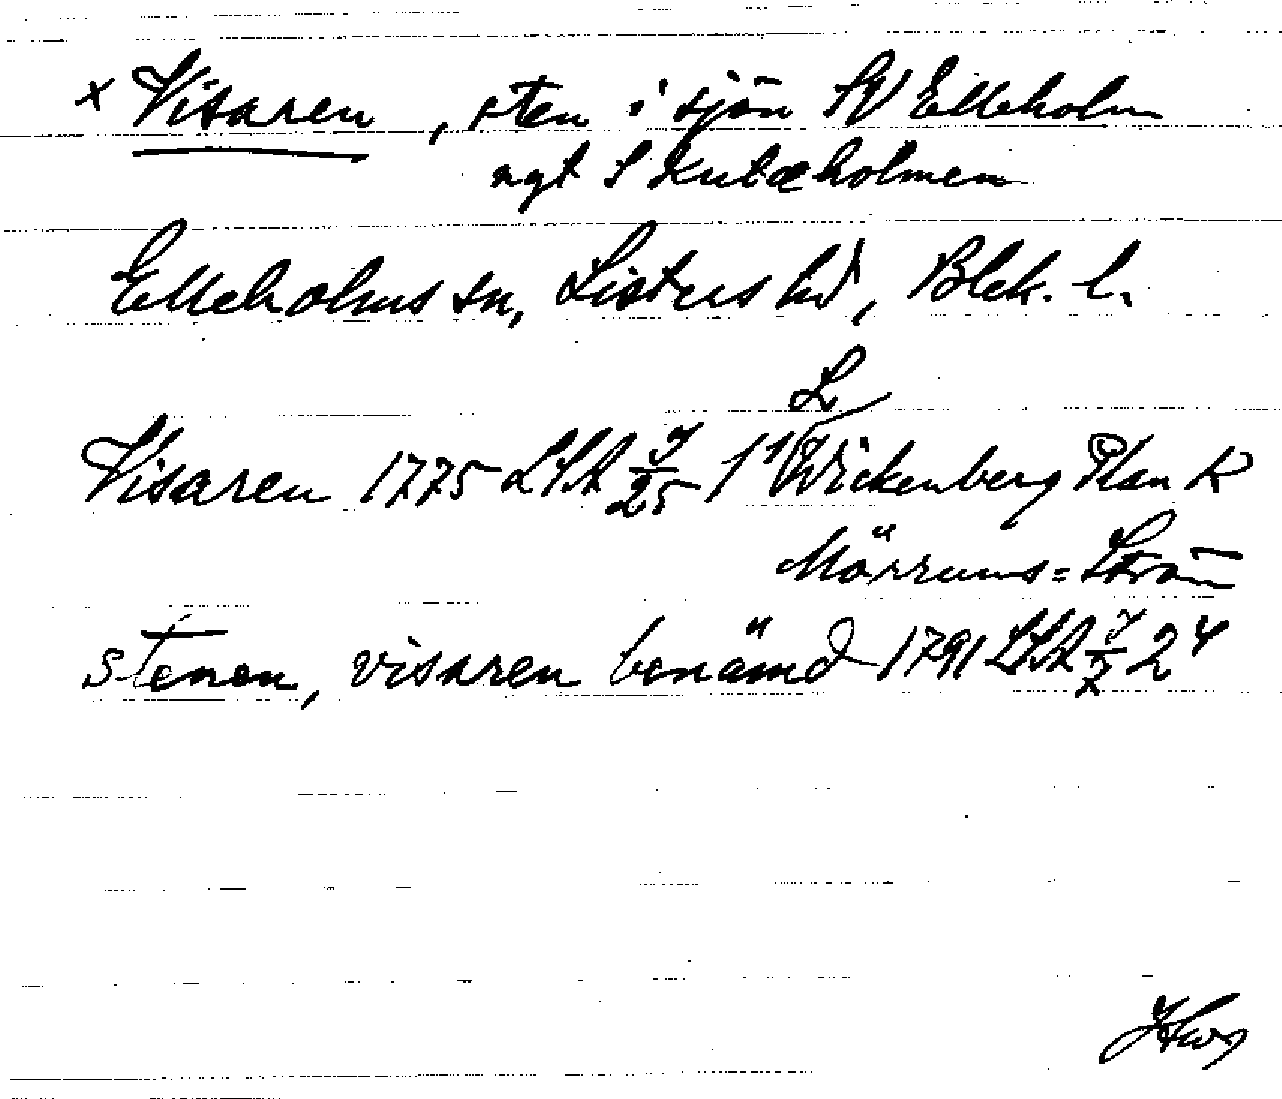 x Visaren, sten i sjön SV Elleholm
ngt S Kutaholmen
Elleholms sn, Listers hd, Blek. l.
Visaren 1775 LSA J/25 1¹ L Wickenberg Plan K
Mörrums=Ström
stenen, visaren benämd 1791 LSA J/2 2⁴